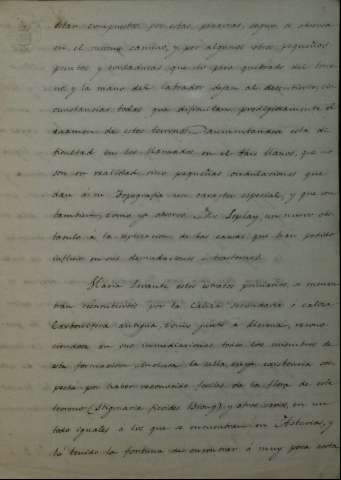 estan compuestos por estas pizarras, segun se observa
en el mismo camino, y por algunos otros pequeños
puntos y cortaduras que lo poco quebrado del terre
no, y la mano del labrador dejan al descubierto, cir
cunstancias todas que dificultan prodigiosamente el
examen de estos terrenos. Aumentandose esta di
ficultad en los llamados en el Pais llanos, que no
son en realidad sino pequeñas ondulaciones que
dan á su Topografia un caracter especial, y que son
tambien, como ya observó Mr Leplay, un nuevo obs
taculo á la esplicacion de las causas que han podido
influir en sus denudaciones ó trastornos.
Hacia Levante estos estratos pizarreños, se encuen
tran sustituidos por la Caliza secundaria ó caliza
Carbonifera antigua, como junto a
en sus inmediaciones todos los miembros de
esta formacion, inclusa la ulla cuya existencia sos
pecho por haber reconocido fosiles de la flora de este
terreno (Stigmaria ficoides Brong), y otros varios, en un
todo iguales a los que se encuentran en Asturias, y
he tenido la fortuna de encontrar á muy poca costa